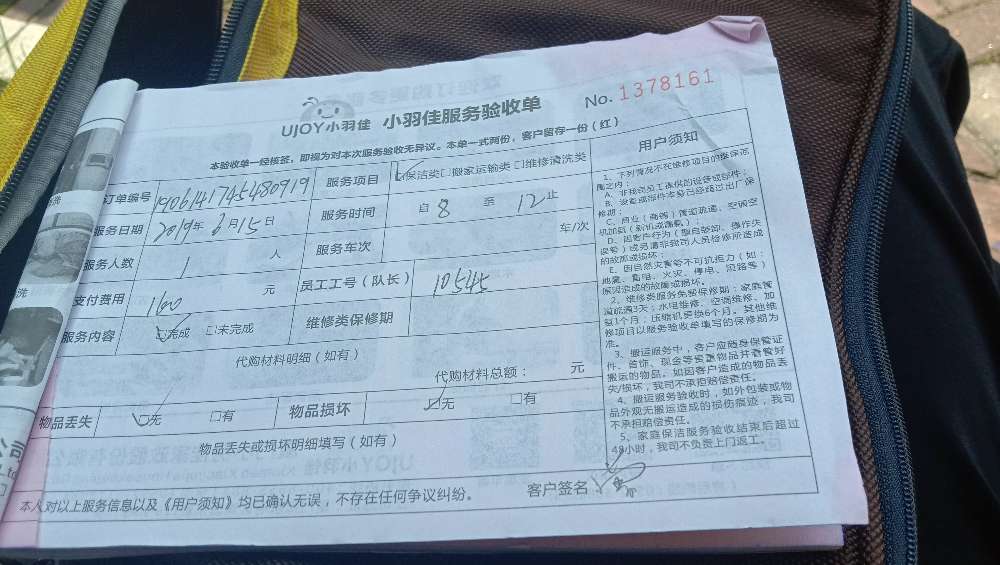 UJOY小羽佳 小羽佳服务验收单 No. 1378161
本验收单一经接签，即视为对本次服务验收无异议。本单一式两份，客户留存一份（红）
订单编号 1906141745480919 服务项目 ☑保洁类□搬家运输类□维修清洗类
服务日期 2019年6月15日 服务时间 自 8 至 12 止
服务人数 1 人 服务车次 车/次
支付费用 160 元 员工工号（队长） 10545
服务内容 ☑完成 □未完成 维修类保修期
代购材料明细（如有）
代购材料总额： 元
物品丢失 ☑无 □有 物品损坏 ☑无 □有
物品丢失或损坏明细填写（如有）
本人对以上服务信息以及《用户须知》均已确认无误，不存在任何争议纠纷。 客户签名
用户须知
1、下列情况不在维修项目的维保范
围之内：
A、非我司员工提供的设备或部件；
B、设备或部件本身已经超过出厂保
修期；
C、商业（商铺）管道疏通、空调空
机加氟（新机或漏氟）；
D、因客户行为（擅自装卸、操作失
误等）或另请非我司人员检修所造成
的故障或损坏；
E、因自然灾害等不可抗拒力（如：
地震、雷电、火灾、停电、短路等）
原因造成的故障或损坏。
2、维修类服务免费保修期：家庭管
道疏通3天；水电维修、空调维修、加
氟1个月；压缩机更换6个月。其他维
修项目以服务验收单填写的保修期为
准。
3、搬运服务中，客户应随身保管证
件、首饰、现金等贵重物品并看管好
搬运的物品。如因客户造成的物品丢
失/损坏，我司不承担赔偿责任。
4、搬运服务验收时，如外包装或物
品外观无搬运造成的损伤痕迹，我司
不承担赔偿责任。
5、家庭保洁服务验收结束后超过
48小时，我司不负责上门返工。